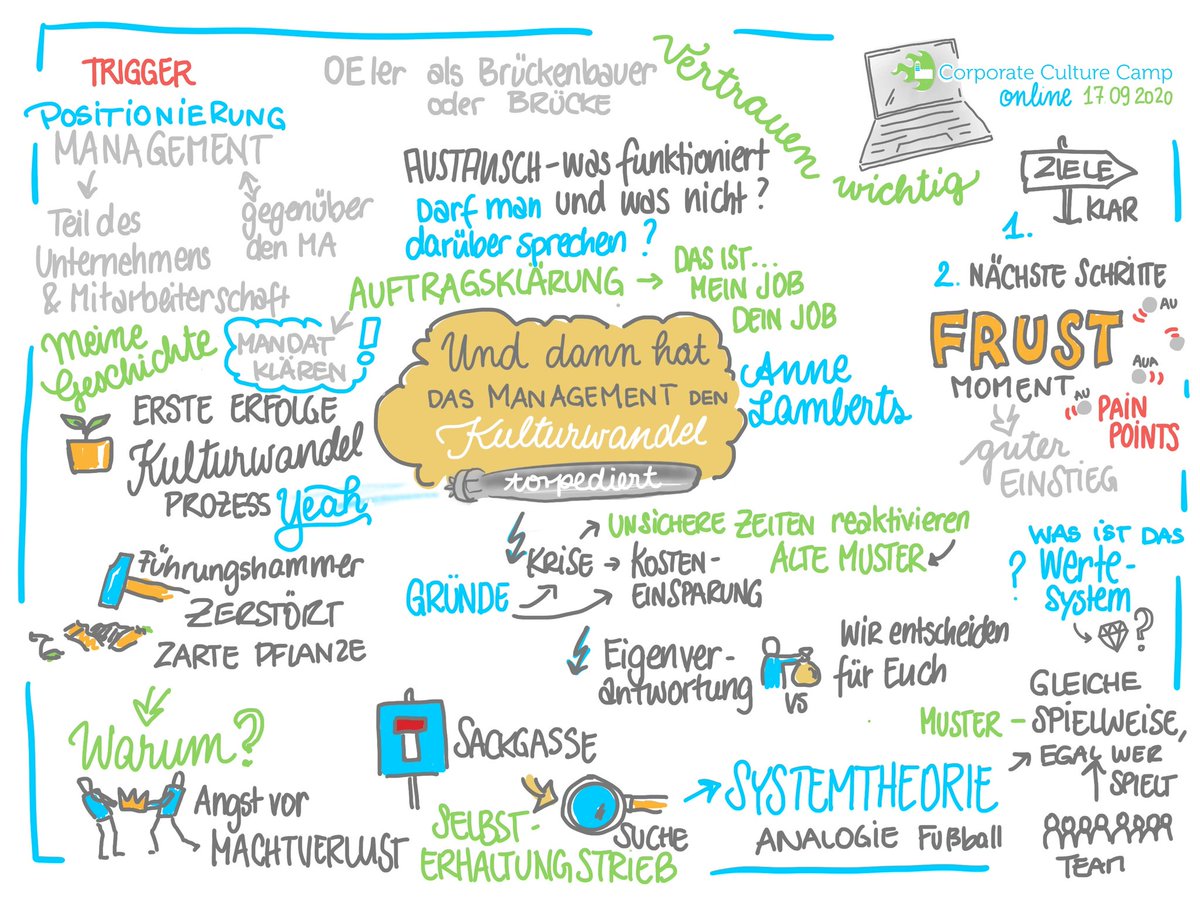 TRIGGER
POSITIONIERUNG
MANAGEMENT
Teil des
Unternehmens
& Mitarbeiterschaft
gegenüber
den MA
OEler als Brückenbauer
oder BRÜCKE
Vertrauen
wichtig
Corporate Culture Camp
online 17 09 2020
AUSTAUSCH - was funktioniert
und was nicht?
Darf man
darüber sprechen?
AUFTRAGSKLÄRUNG → DAS IST...
MEIN JOB
DEIN JOB
MANDAT
KLÄREN!
ZIELE
KLAR
1.
2. NÄCHSTE SCHRITTE
FRUST
MOMENT
AU
AUA
AU
PAIN
POINTS
guter
EINSTIEG
Meine
Geschichte
ERSTE ERFOLGE
Kulturwandel
PROZESS Yeah
Und dann hat
DAS MANAGEMENT DEN
Kulturwandel
torpediert
Anne
Lamberts
Führungshammer
ZERSTÖRT
ZARTE PFLANZE
GRÜNDE
KRISE → KOSTEN-
EINSPARUNG
UNSICHERE ZEITEN reaktivieren
ALTE MUSTER
Eigenver-
antwortung
VS
Wir entscheiden
für Euch
WAS IST DAS
Werte-
system
?
?
Warum?
Angst vor
MACHTVERLUST
SACKGASSE
SELBST-
ERHALTUNGSTRIEB
SUCHE
SYSTEMTHEORIE
ANALOGIE Fußball
MUSTER - GLEICHE
SPIELWEISE,
EGAL WER
SPIELT
TEAM